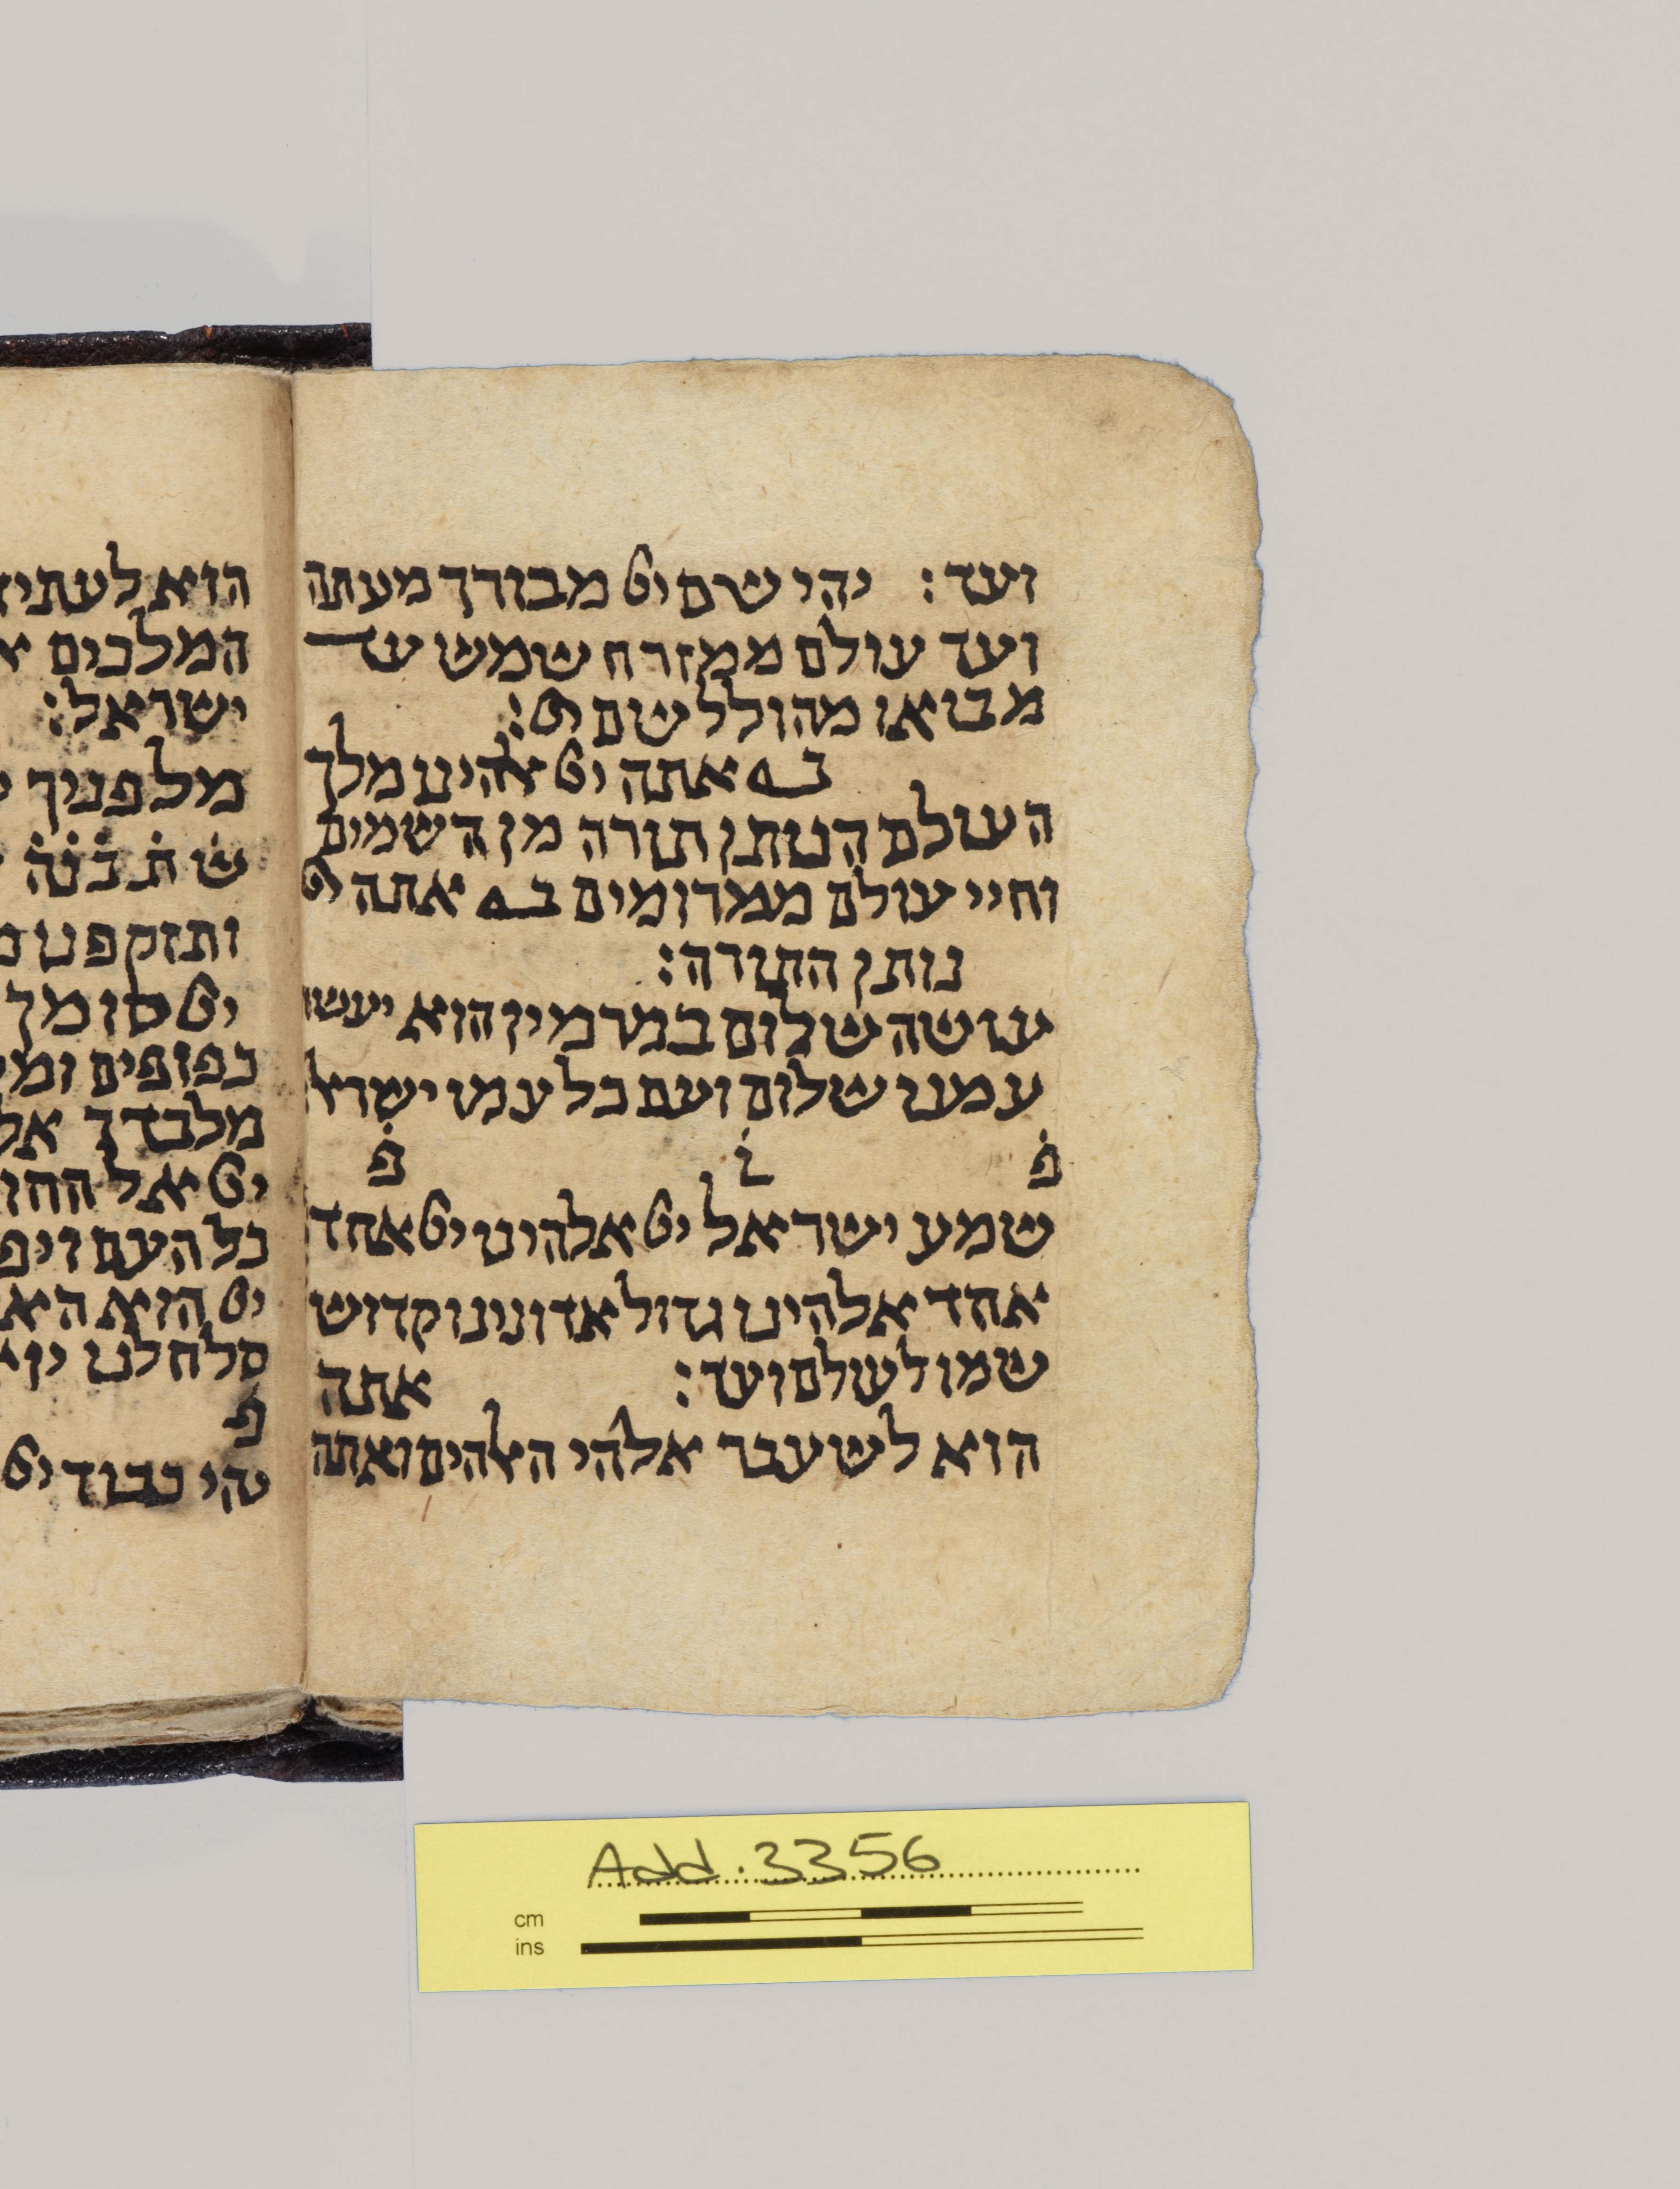 ועד: יהי שם יי מבורך מעתה
ועד עולם ממזרח שמש עד
מבואו מהולל שם יי:
ב אתה יי אלהינו מלך
העולם הנותן תורה מן השמים
וחיי עולם ממרומים ב אתה יי
נותן התורה:
עושה שלום במרמיו הוא יעשה
עמנו שלום ועם כל עמו ישראל
פ ו פ
שמע ישראל יי אלהינו יי אחד
אחד אלהינו גדול אדונינו קדוש
שמו לעולם ועד: אתה
הוא לשעבר אלהי האלהים ואתה
הוא לעתיד
המלכים
ישראל:
מלפניך
ותזקפנו
יי סומך
כפופים
מלבדך
יי אל
כל העם
יי הוא
סלח לנו
פ
יהי כבוד יי
Add. 3356
cm
ins